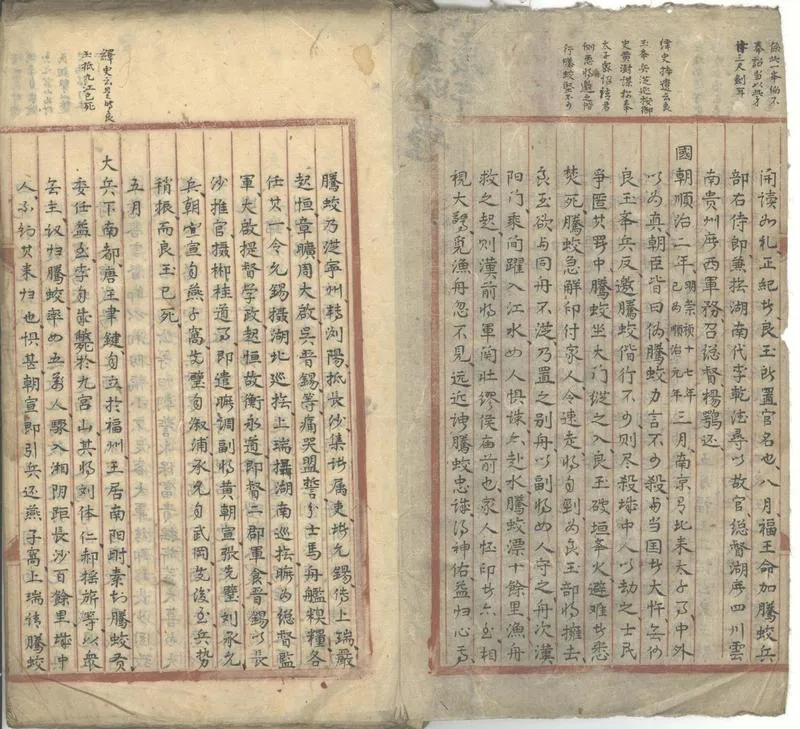 繹史摭遺云良
玉奉兵逆按御
史黃澍謀於奉
太子密詔誅君
側惡將邀之偕
行騰蛟堅不可
開讀如礼正紀皆良玉所置官名也八月福王命加騰蛟兵
部右侍郎兼撫湖南代李乾德尋以故官總督湖廣四川雲
南貴州廣西軍務召總督楊鶚还
國朝順治二年明崇禎十七年已为順治元年三月南京有北来太子事中外
以为真朝臣皆曰伪騰蛟力言不可殺与当国者大忤無何
良玉举兵反邀騰蛟偕行不可则尽殺城中人以劫之士民
爭匿其署中騰蛟坐大门纵之入良玉破垣举火避难者悉
焚死騰蛟急解印付家人令速走将自刭为良玉部将擁去
良玉欲与同舟不從乃置之别舟以副将四人守之舟次漢
阳门乘间躍入江水四人惧誅亦赴水騰蛟漂十餘里漁舟
救之起则漢前将軍関壮繆侯庙前也家人怀印者亦至相
視大驚觅漁舟忽不見远近謂騰蛟忠誠得神佑益归心焉
繹史云至時良
玉抵九江已死
騰蛟乃從寧州转浏陽抵长沙集諸属吏堵允錫傅上瑞嚴
起恒章曠周大啟吳晋錫等痛哭盟誓分士馬舟艦糗糧各
任其一令允錫攝湖北巡抚上瑞攝湖南巡抚曠为總督監
軍大啟提督學政起恒故衡永道即督二郡軍食晋錫以長
沙推官攝郴桂道事即遣曠調副将黄朝宣張先璧刘承允
兵朝宣自燕子窩先璧自溆浦承允自武岡先後至兵势
稍振而良玉已死
五月
大兵下南都唐王聿鍵自立於福州王居南阳时素知騰蛟贤
委任益至李自成斃於九宫山其将刘体仁郝摇旗等以衆
無主议归騰蛟率四五萬人驟入湘阴距長沙百餘里城中
人不知其来归也惧甚朝宣即引兵还燕子窩上瑞請騰蛟